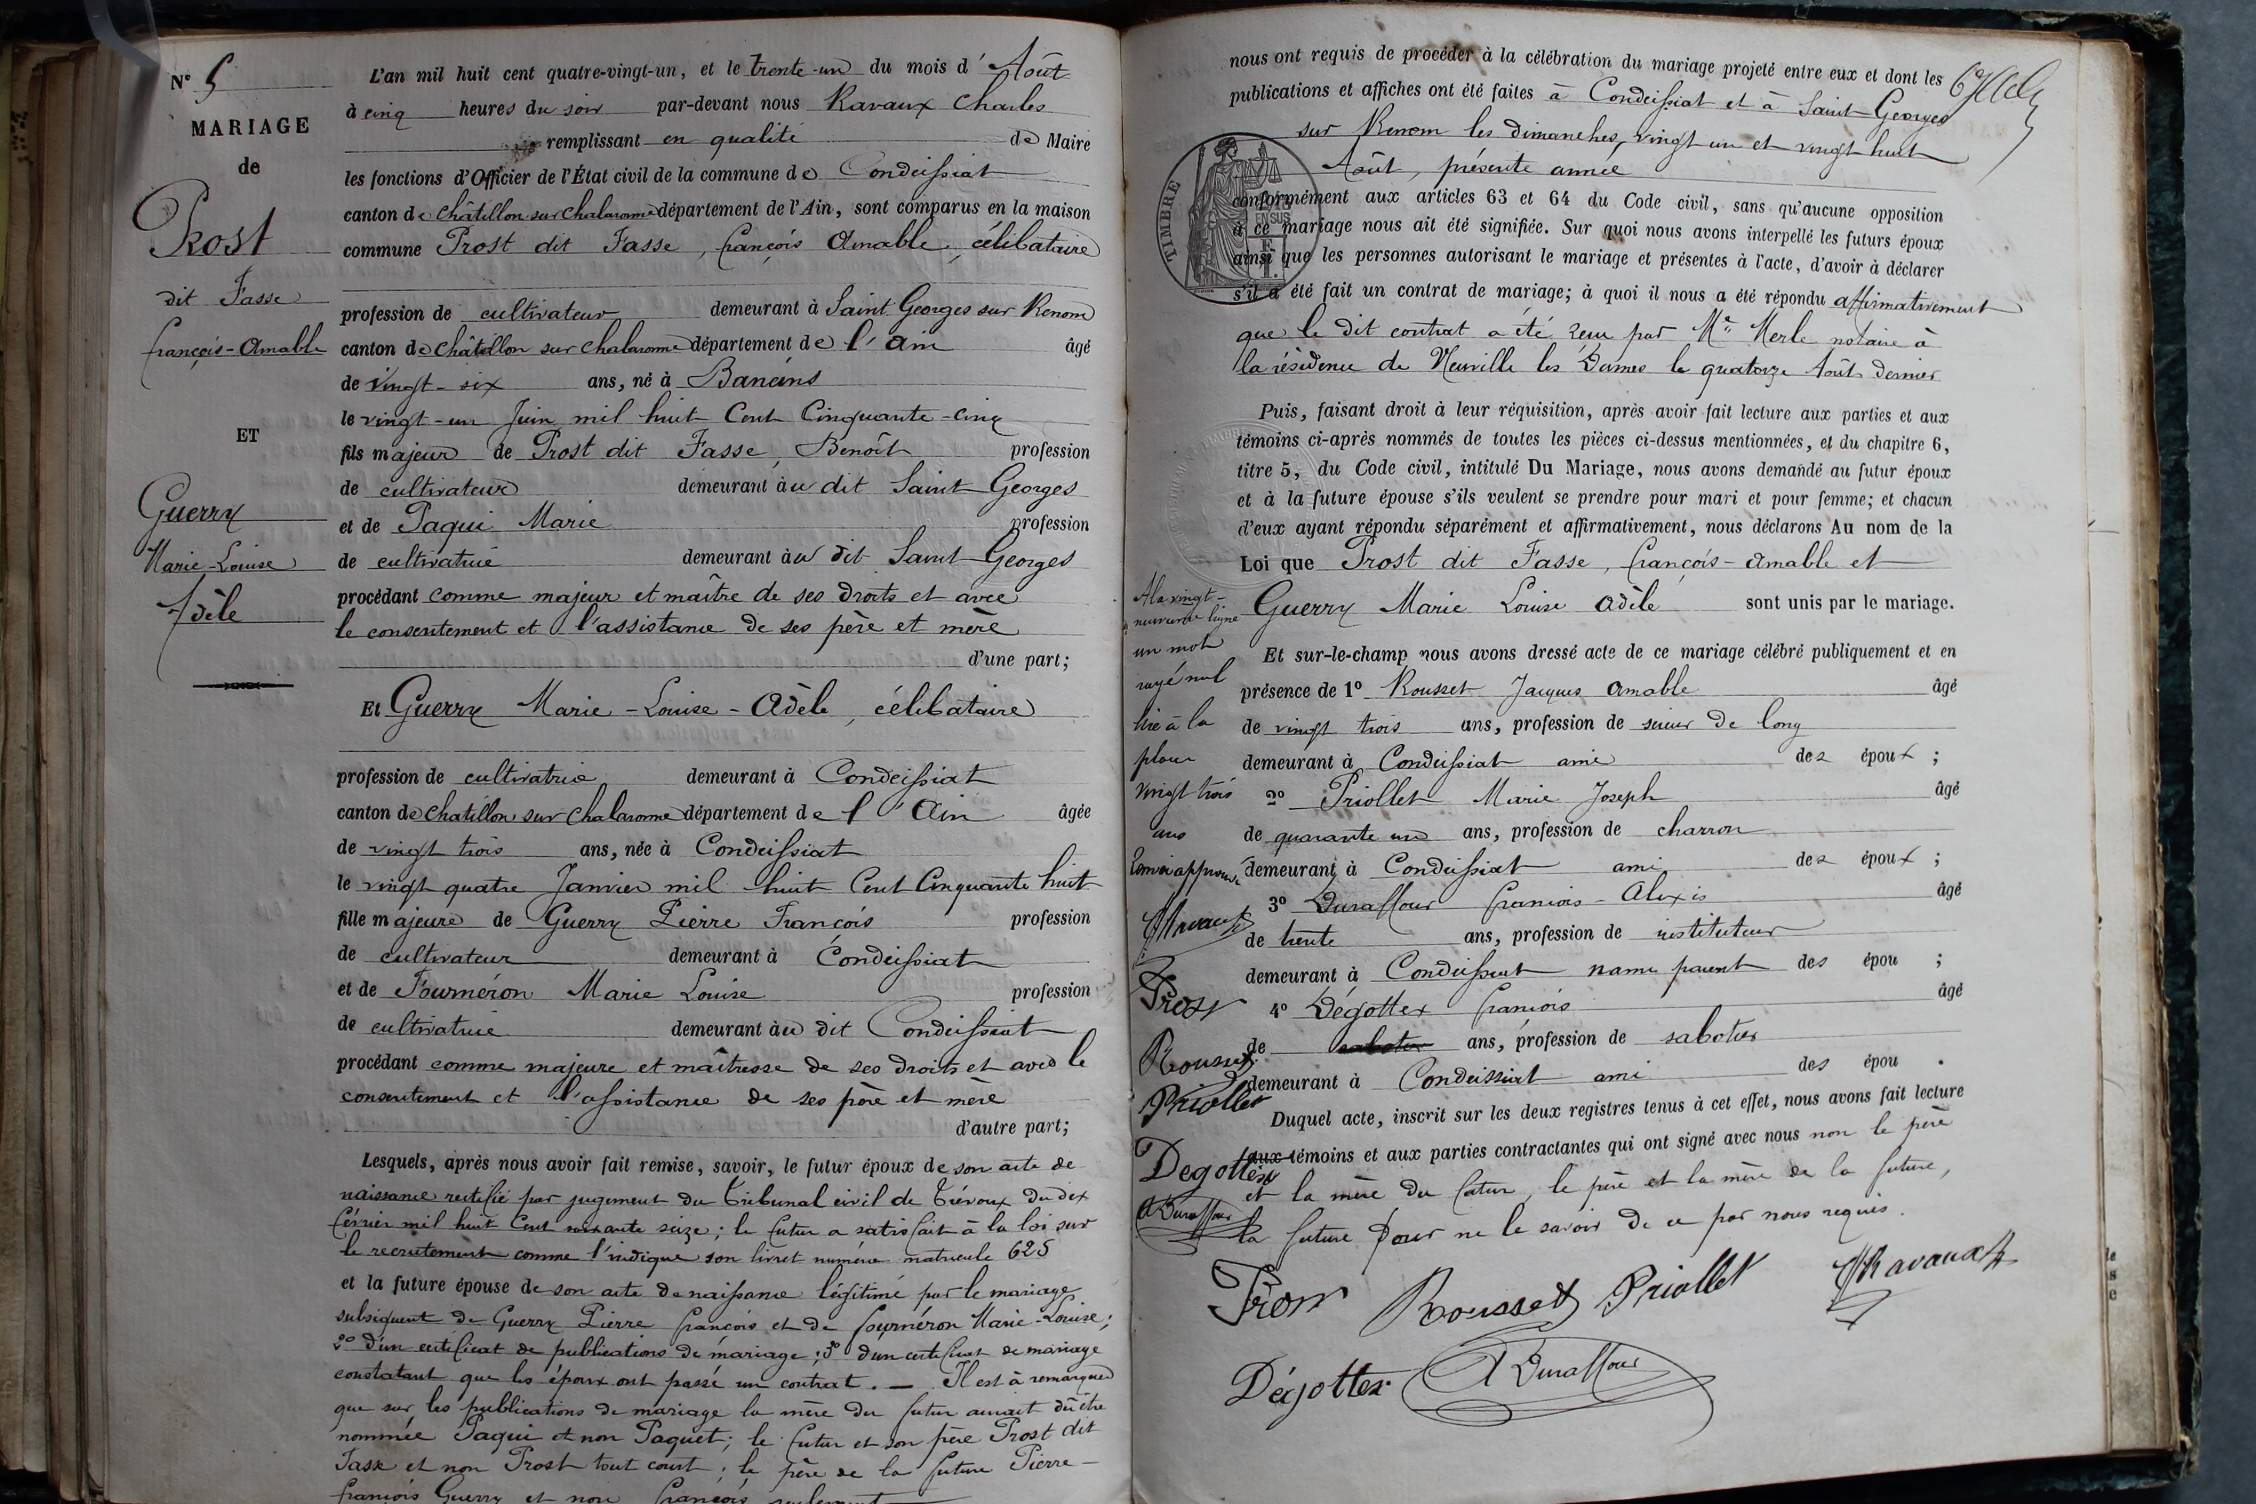 N° 5
MARIAGE
de
Prost
dit Fasse
françois-Amable
ET
Guerry
Marie-Louise
Adèle
L'an mil huit cent quatre-vingt-un, et le trente-un du mois d'Août
à cinq heures du soir par-devant nous Ravaux Charles
remplissant en qualité de Maire
les fonctions d'Officier de l'État civil de la commune de Condeissiat
canton de Châtillon sur Chalaronne département de l'Ain, sont comparus en la maison
commune Prost dit Fasse, françois Amable, célibataire
profession de cultivateur demeurant à Saint Georges sur Renom
canton de Châtillon sur Chalaronne département de l'Ain âgé
de vingt-six ans, né à Baneins
le vingt-un Juin mil huit Cent Cinquante-cinq
fils majeur de Prost dit Fasse, Benoît profession
de cultivateur demeurant au dit Saint Georges
et de Paqui Marie profession
de cultivatrice demeurant au dit Saint Georges
procédant comme majeur et maître de ses droits et avec
le consentement et l'assistance de ses père et mère
d'une part;
Et Guerry Marie-Louise-Adèle, célibataire
profession de cultivatrice demeurant à Condeissiat
canton de Chatillon sur Chalaronne département de l'Ain âgée
de vingt trois ans, née à Condeissiat
le vingt quatre Janvier mil huit Cent Cinquante huit
fille majeure de Guerry Pierre François profession
de cultivateur demeurant à Condeissiat
et de Fournéron Marie Louise profession
de cultivatrice demeurant au dit Condeissiat
procédant comme majeure et maîtresse de ses droits et avec le
consentement et l'assistance de ses père et mère
d'autre part;
Lesquels, après nous avoir fait remise, savoir, le futur époux de son acte de
naissance rectifié par jugement du Tribunal civil de Trévoux du dix
février mil huit Cent soixante seize; le futur a satisfait à la loi sur
le recrutement comme l'indique son livret numéro matricule 625
et la future épouse de son acte de naissance légitimé par le mariage
subséquent de Guerry Pierre françois et de fournéron Marie-Louise;
2° d'un certificat de publications de mariage; 3° d'un certificat de mariage
constatant que les époux ont passé un contrat. — Il est à remarquer
que sur les publications de mariage la mère du futur aurait dû être
nommée Paqui et non Paquet; le futur et son père Prost dit
Fasse et non Prost tout court; le père de la future Pierre-
françois Guerry et non françois seulement
nous ont requis de procéder à la célébration du mariage projeté entre eux et dont les
publications et affiches ont été faites à Condeissiat et à Saint Georges
sur Renom les dimanches, vingt un et vingt huit
Août, présente année
TIMBRE
EN SUS
conformément aux articles 63 et 64 du Code civil, sans qu'aucune opposition
à ce mariage nous ait été signifiée. Sur quoi nous avons interpellé les futurs époux
ainsi que les personnes autorisant le mariage et présentes à l'acte, d'avoir à déclarer
s'il a été fait un contrat de mariage; à quoi il nous a été répondu affirmativement
que le dit contrat a été reçu par Me Merle notaire à
la résidence de Neuville les Dames le quatorze Août dernier
Puis, faisant droit à leur réquisition, après avoir fait lecture aux parties et aux
témoins ci-après nommés de toutes les pièces ci-dessus mentionnées, et du chapitre 6,
titre 5, du Code civil, intitulé Du Mariage, nous avons demandé au futur époux
et à la future épouse s'ils veulent se prendre pour mari et pour femme; et chacun
d'eux ayant répondu séparément et affirmativement, nous déclarons Au nom de la
Loi que Prost dit Fasse, françois-Amable et
Guerry Marie Louise Adèle sont unis par le mariage.
Et sur-le-champ nous avons dressé acte de ce mariage célébré publiquement et en
présence de 1° Rousset Jacques Amable âgé
de vingt trois ans, profession de scieur de long
demeurant à Condeissiat ami des époux;
2° Priollet Marie Joseph âgé
de quarante un ans, profession de charron
demeurant à Condeissiat ami des époux;
3° Duraffour françois-Alexis âgé
de trente ans, profession de instituteur
demeurant à Condeissiat non parent des épou;
4° Dégottex françois âgé
de sabotier ans, profession de sabotier
demeurant à Condeissiat ami des épou.
Duquel acte, inscrit sur les deux registres tenus à cet effet, nous avons fait lecture
aux témoins et aux parties contractantes qui ont signé avec nous non le père
et la mère du futur, le père et la mère de la future,
la future pour ne le savoir de ce par nous requis.
A la vingt-
neuvième ligne
un mot
rayé nul
lire à la
place
vingt trois
ans
Renvoi approuvé
Ravaux
Prost
Rousset
Priollet
Degottex
A Duraffour
Prost Rousset Priollet Ravaux
Dégottex A Duraffour